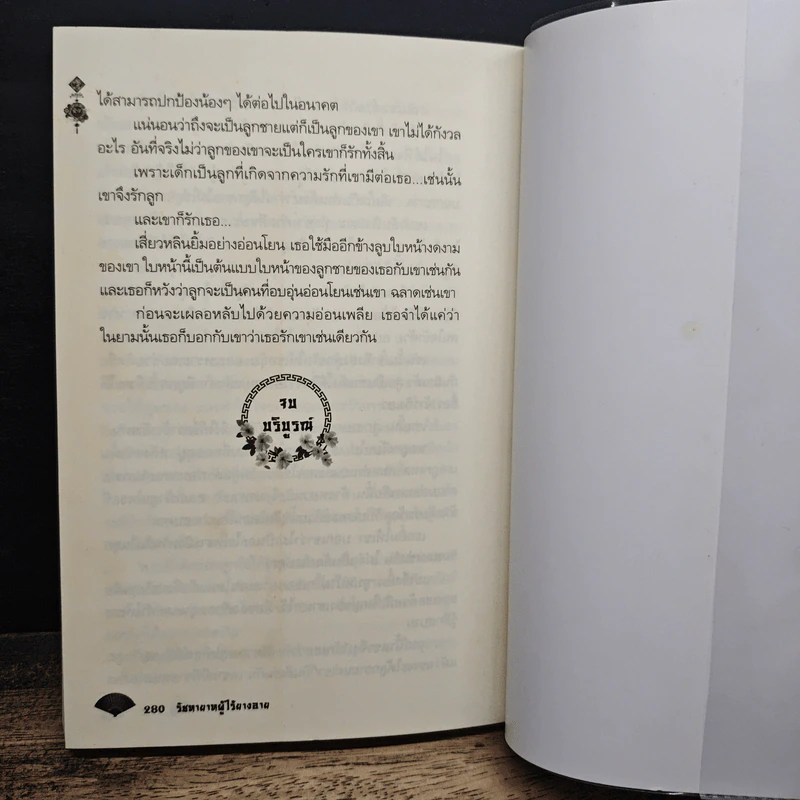 ได้สามารถปกป้องน้องๆ ได้ต่อไปในอนาคต
แน่นอนว่าถึงจะเป็นลูกชายแต่ก็เป็นลูกของเขา เขาไม่ได้กังวล
อะไร อันที่จริงไม่ว่าลูกของเขาจะเป็นใครเขาก็รักทั้งสิ้น
เพราะเด็กเป็นลูกที่เกิดจากความรักที่เขามีต่อเธอ...เช่นนั้น
เขาจึงรักลูก
และเขาก็รักเธอ...
เสี่ยวหลินยิ้มอย่างอ่อนโยน เธอใช้มืออีกข้างลูบใบหน้างดงาม
ของเขา ใบหน้านี้เป็นต้นแบบใบหน้าของลูกชายของเธอกับเขาเช่นกัน
และเธอก็หวังว่าลูกจะเป็นคนที่อบอุ่นอ่อนโยนเช่นเขา ฉลาดเช่นเขา
ก่อนจะเผลอหลับไปด้วยความอ่อนเพลีย เธอจำได้แค่ว่า
ในยามนั้นเธอก็บอกกับเขาว่าเธอรักเขาเช่นเดียวกัน
จบ
บริบูรณ์
280 วิธหายาทผู้ไร้ยางอาย